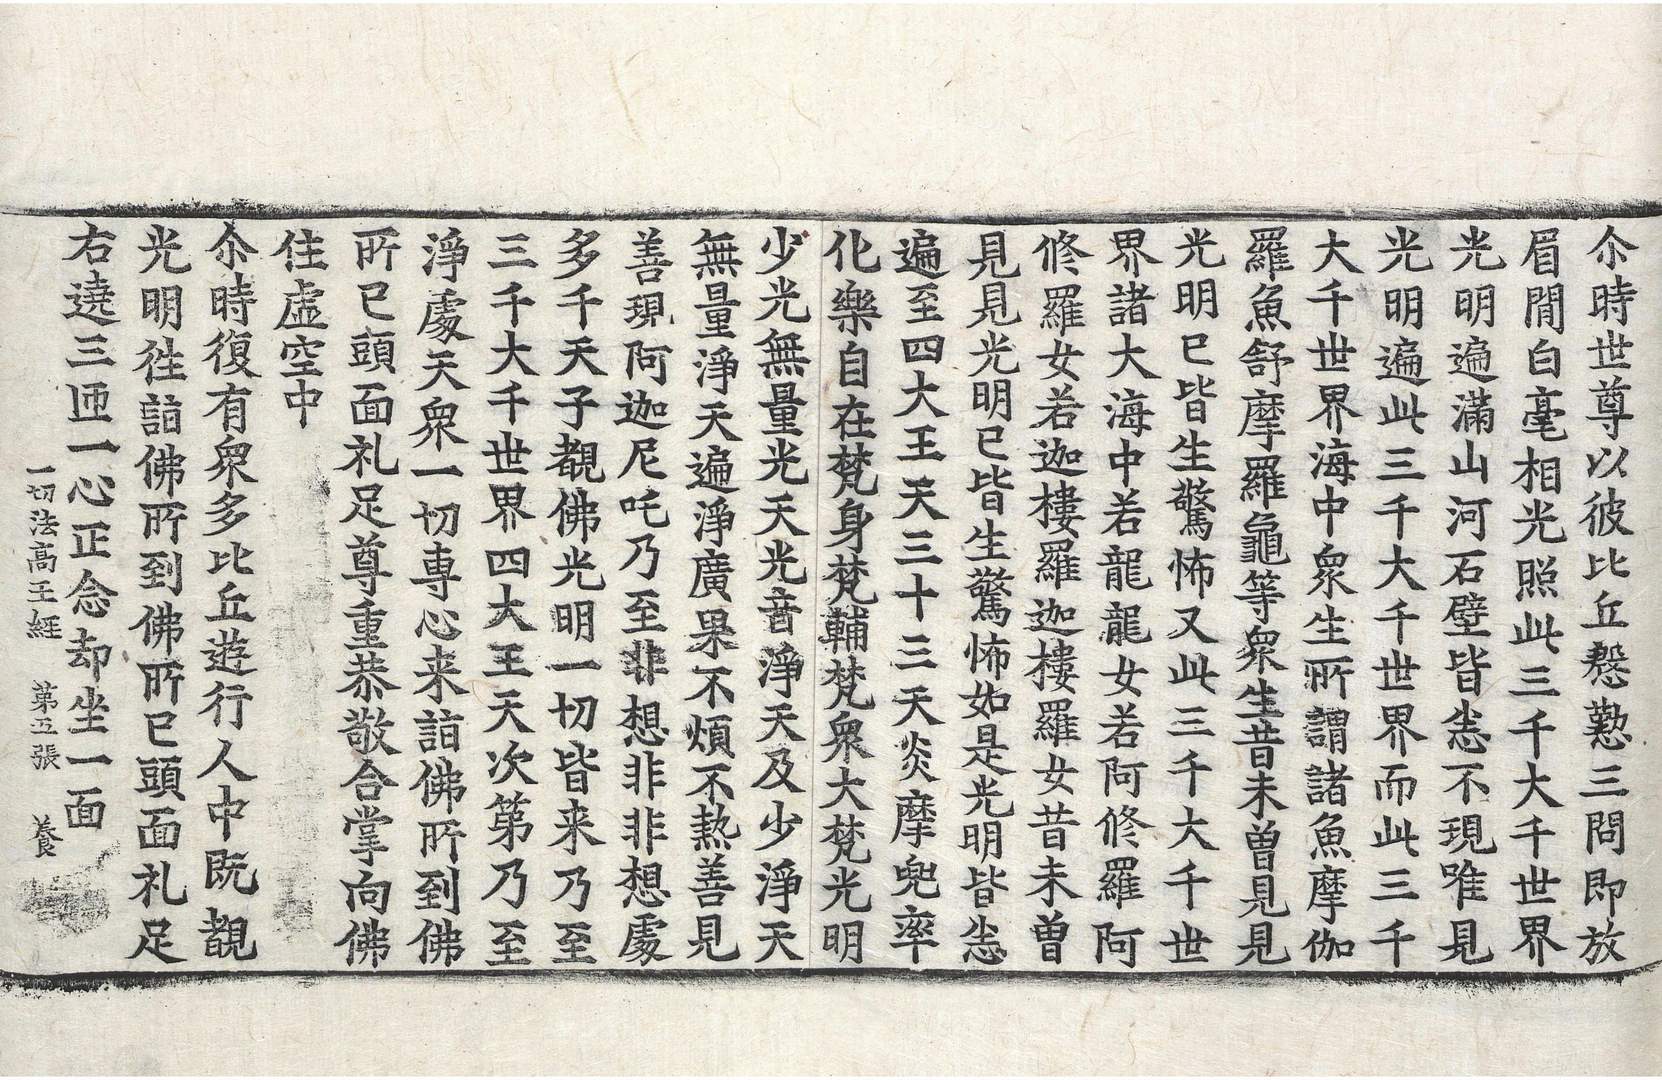 尒時世尊以彼比丘慇懃三問即放
眉閒白毫相光照此三千大千世界
光明遍滿山河石壁皆悉不現唯見
光明遍此三千大千世界而此三千
大千世界海中衆生所謂諸魚摩伽
羅魚舒摩羅龜等衆生昔未曽見見
光明已皆生驚怖又此三千大千世
界諸大海中若龍龍女若阿修羅阿
修羅女若迦樓羅迦樓羅女昔未曽
見見光明已皆生驚怖如是光明皆悉
遍至四大王天三十三天炎摩兜率
化樂自在梵身梵輔梵衆大梵光明
少光無量光天光音淨天及少淨天
無量淨天遍淨廣果不煩不熱善見
善現阿迦尼吒乃至非想非非想處
多千天子覩佛光明一切皆来乃至
三千大千世界四大王天次第乃至
淨處天衆一切専心来詣佛所到佛
所已頭面礼足尊重恭敬合掌向佛
住虛空中
尒時復有衆多比丘遊行人中既覩
光明徃詣佛所到佛所已頭面礼足
右遶三匝一心正念却坐一面
一切法高王經 第五張 養